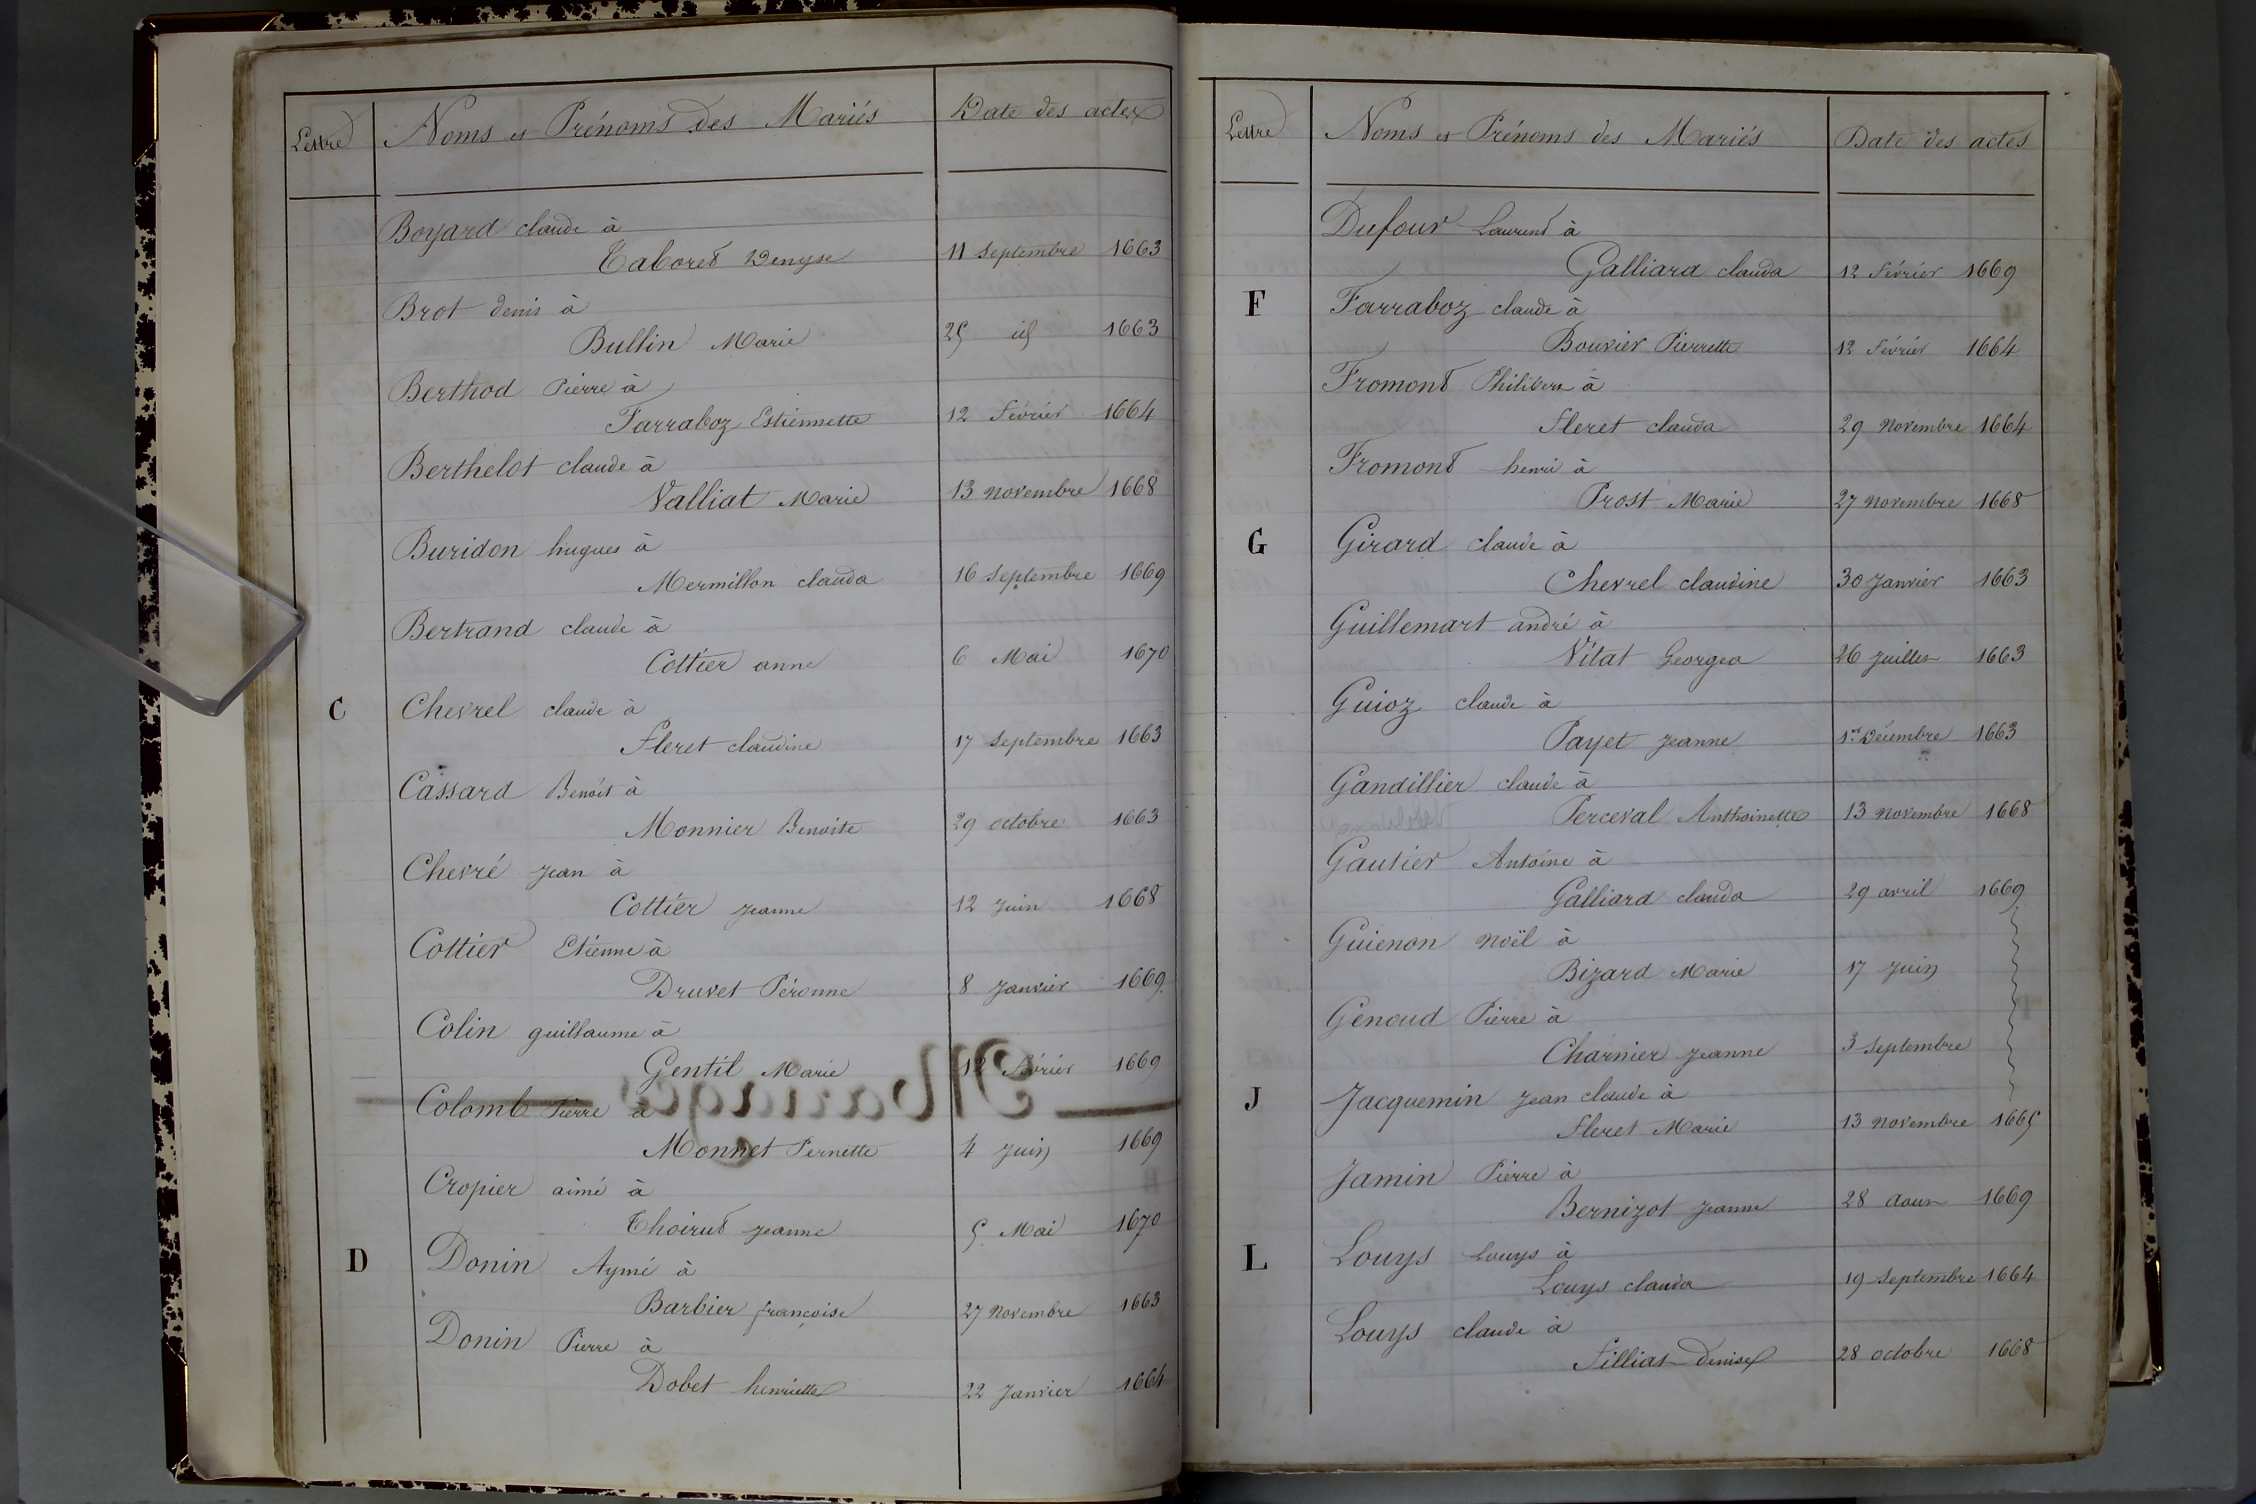 Lettre Noms et Prénoms des Mariés Date des actes
Boyard claude à
Taboret Denyse 11 Septembre 1663
Brot denis à
Bullin Marie 25 id 1663
Berthod Pierre à
Farraboz Estiennette 12 Février 1664
Berthelot claude à
Valliat Marie 13 Novembre 1668
Buridon hugues à
Mermillon clauda 16 Septembre 1669
Bertrand claude à
Cottier anne 6 Mai 1670
C Chevrel claude à
Fleret claudine 17 Septembre 1663
Cassard Benoit à
Monnier Benoite 29 octobre 1663
Chevré Jean à
Cottier Jeanne 12 Juin 1668
Cottier Etienne à
Druvet Péronne 8 Janvier 1669
Colin guillaume à
Gentil Marie 12 Février 1669
Colomb Pierre à
Monnet Pernette 4 Juin 1669
Cropier aimé à
Thoirud Jeanne 5 Mai 1670
D Donin Aymé à
Barbier françoise 27 Novembre 1663
Donin Pierre à
Dobet henriette 22 Janvier 1664
Lettre Noms et Prénoms des Mariés Date des actes
Dufour Laurent à
Galliard clauda 12 Février 1669
F Farraboz claude à
Bouvier Pierrette 12 Février 1664
Fromond Philibert à
Fleret clauda 29 Novembre 1664
Fromond henri à
Prost Marie 27 Novembre 1668
G Girard claude à
Chevrel claudine 30 Janvier 1663
Guillemart andré à
Vitat Georgea 26 Juillet 1663
Guioz claude à
Payet Jeanne 1er Décembre 1663
Gandillier claude à
Perceval Anthoinette 13 Novembre 1668
Gautier Antoine à
Galliard clauda 29 avril 1669
Guienon Noël à
Bizard Marie 17 Juin
Genoud Pierre à
Charnier Jeanne 3 Septembre
J Jacquemin Jean claude à
Fleret Marie 13 Novembre 1665
Jamin Pierre à
Bernizot Jeanne 28 Aout 1669
L Louys Louys à
Louys clauda 19 Septembre 1664
Louys claude à
Filliat Denise 28 octobre 1668